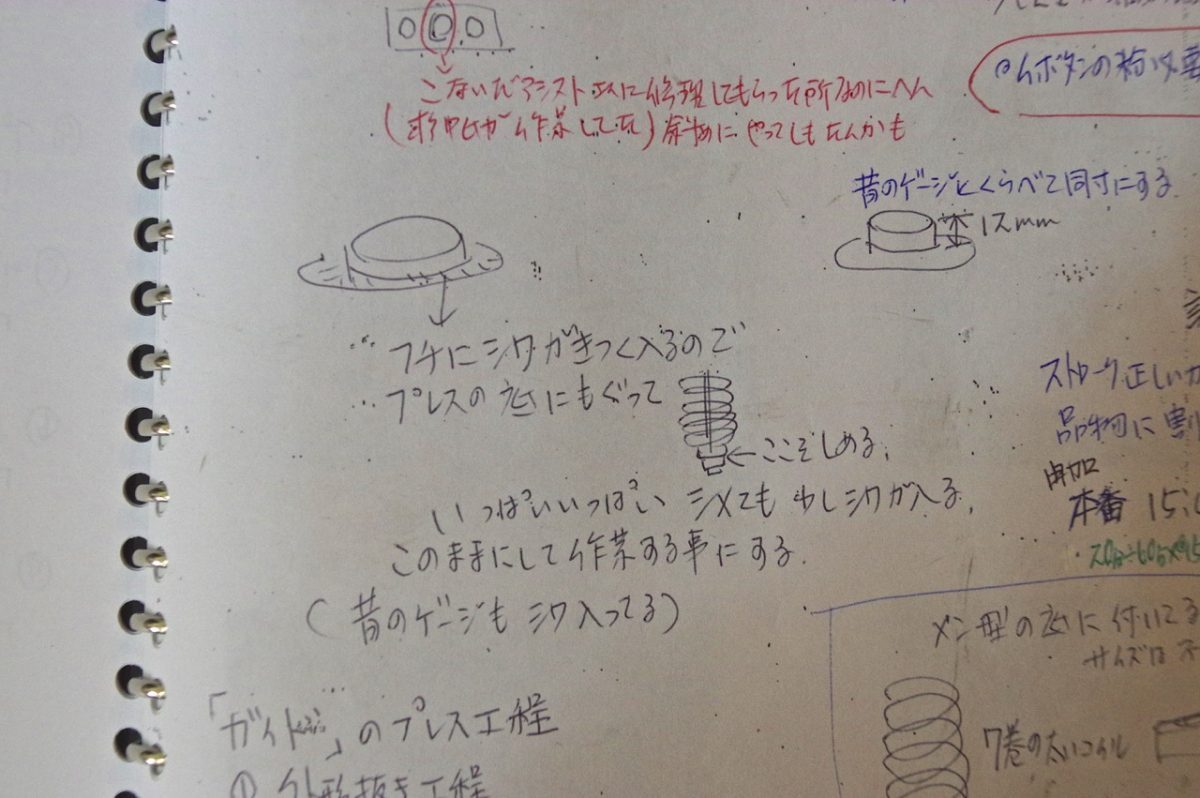 こないだアシストさんに修理してもらった所なのにヘん
作業してた)斜めにやってしもたんかも
ボタンの
昔のゲージとくらべて同寸にする
12mm
フチにシワがきつく入るので
プレスの底にもぐって
←ここをしめる。
いっぱいいっぱいシメても少しシワが入る。
このままにして作業する事にする。
(昔のゲージもシワ入ってる)
ストローク正しい
品物に割
本番 15
メン型の底に付いてる
サイズは
「ガイド」のプレス工程
7巻の太いコイル
① 外形抜き工程